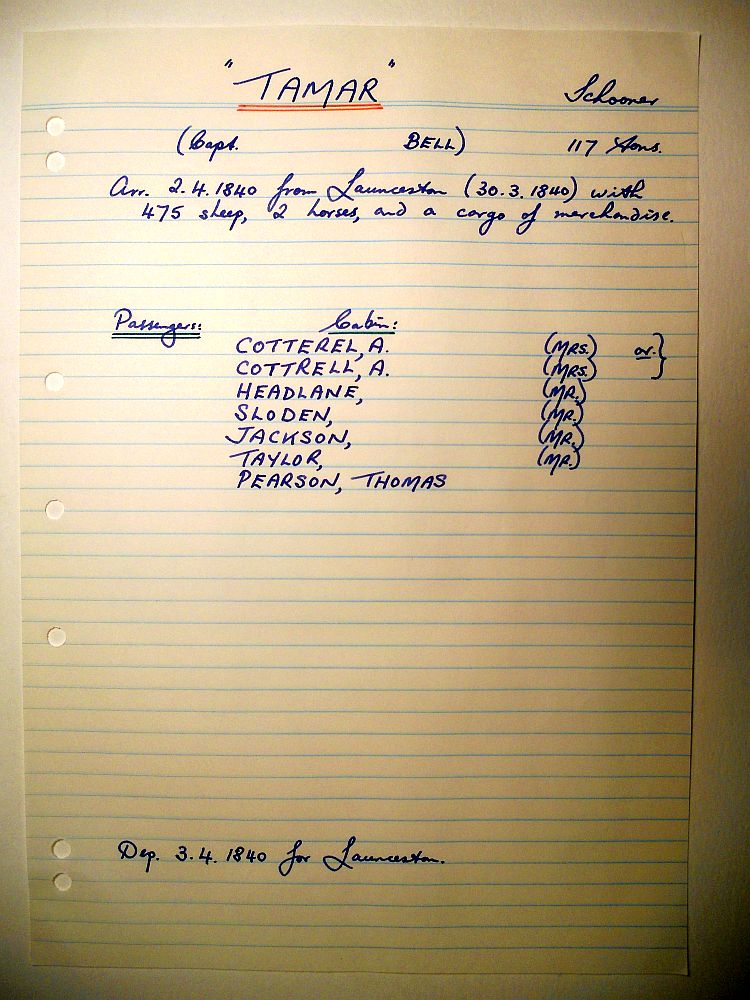 "TAMAR" Schooner
(Capt. BELL) 117 tons.
Arr. 2.4.1840 from Launceston (30.3.1840) with
475 sheep, 2 horses, and a cargo of merchandise.
Passengers: Cabin:
COTTEREL, A. (MRS.) or }
COTTRELL, A. (MRS.)
HEADLANE, (MR.)
SLODEN, (MR.)
JACKSON, (MR.)
TAYLOR, (MR.)
PEARSON, THOMAS
Dep. 3.4.1840 for Launceston.